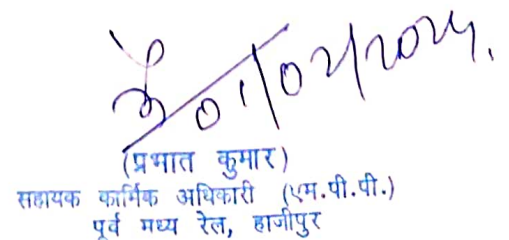 01/02/2024.
(प्रभात कुमार)
सहायक कार्मिक अधिकारी (एम.पी.पी.)
पूर्व मध्य रेल, हाजीपुर